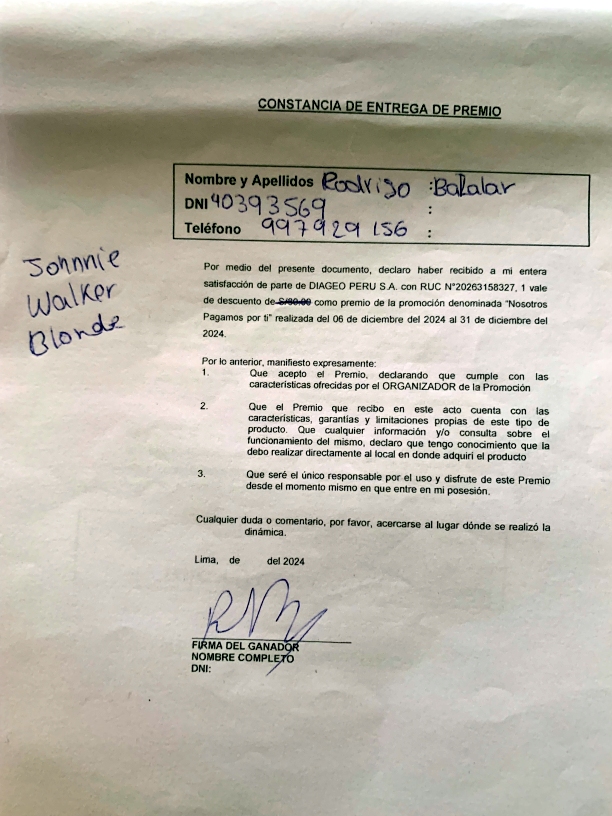 CONSTANCIA DE ENTREGA DE PREMIO
Nombre y Apellidos Rodrigo : Bazalar
DNI 40393569 :
Teléfono 997929156 :
Johnnie
Walker
Blonde
Por medio del presente documento, declaro haber recibido a mi entera
satisfacción de parte de DIAGEO PERU S.A. con RUC N°20263158327, 1 vale
de descuento de como premio de la promoción denominada "Nosotros
Pagamos por ti" realizada del 06 de diciembre del 2024 al 31 de diciembre del
2024.
Por lo anterior, manifiesto expresamente:
1. Que acepto el Premio, declarando que cumple con las
características ofrecidas por el ORGANIZADOR de la Promoción
2. Que el Premio que recibo en este acto cuenta con las
características, garantías y limitaciones propias de este tipo de
producto. Que cualquier información y/o consulta sobre el
funcionamiento del mismo, declaro que tengo conocimiento que la
debo realizar directamente al local en donde adquirí el producto
3. Que seré el único responsable por el uso y disfrute de este Premio
desde el momento mismo en que entre en mi posesión.
Cualquier duda o comentario, por favor, acercarse al lugar dónde se realizó la
dinámica.
Lima, de del 2024
FIRMA DEL GANADOR
NOMBRE COMPLETO
DNI: